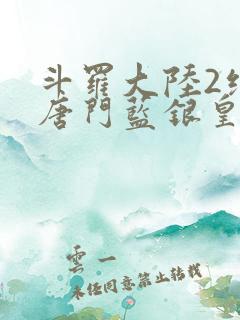 斗羅大陸2絕
唐門藍銀皇
雲一
未經同意禁止轉載